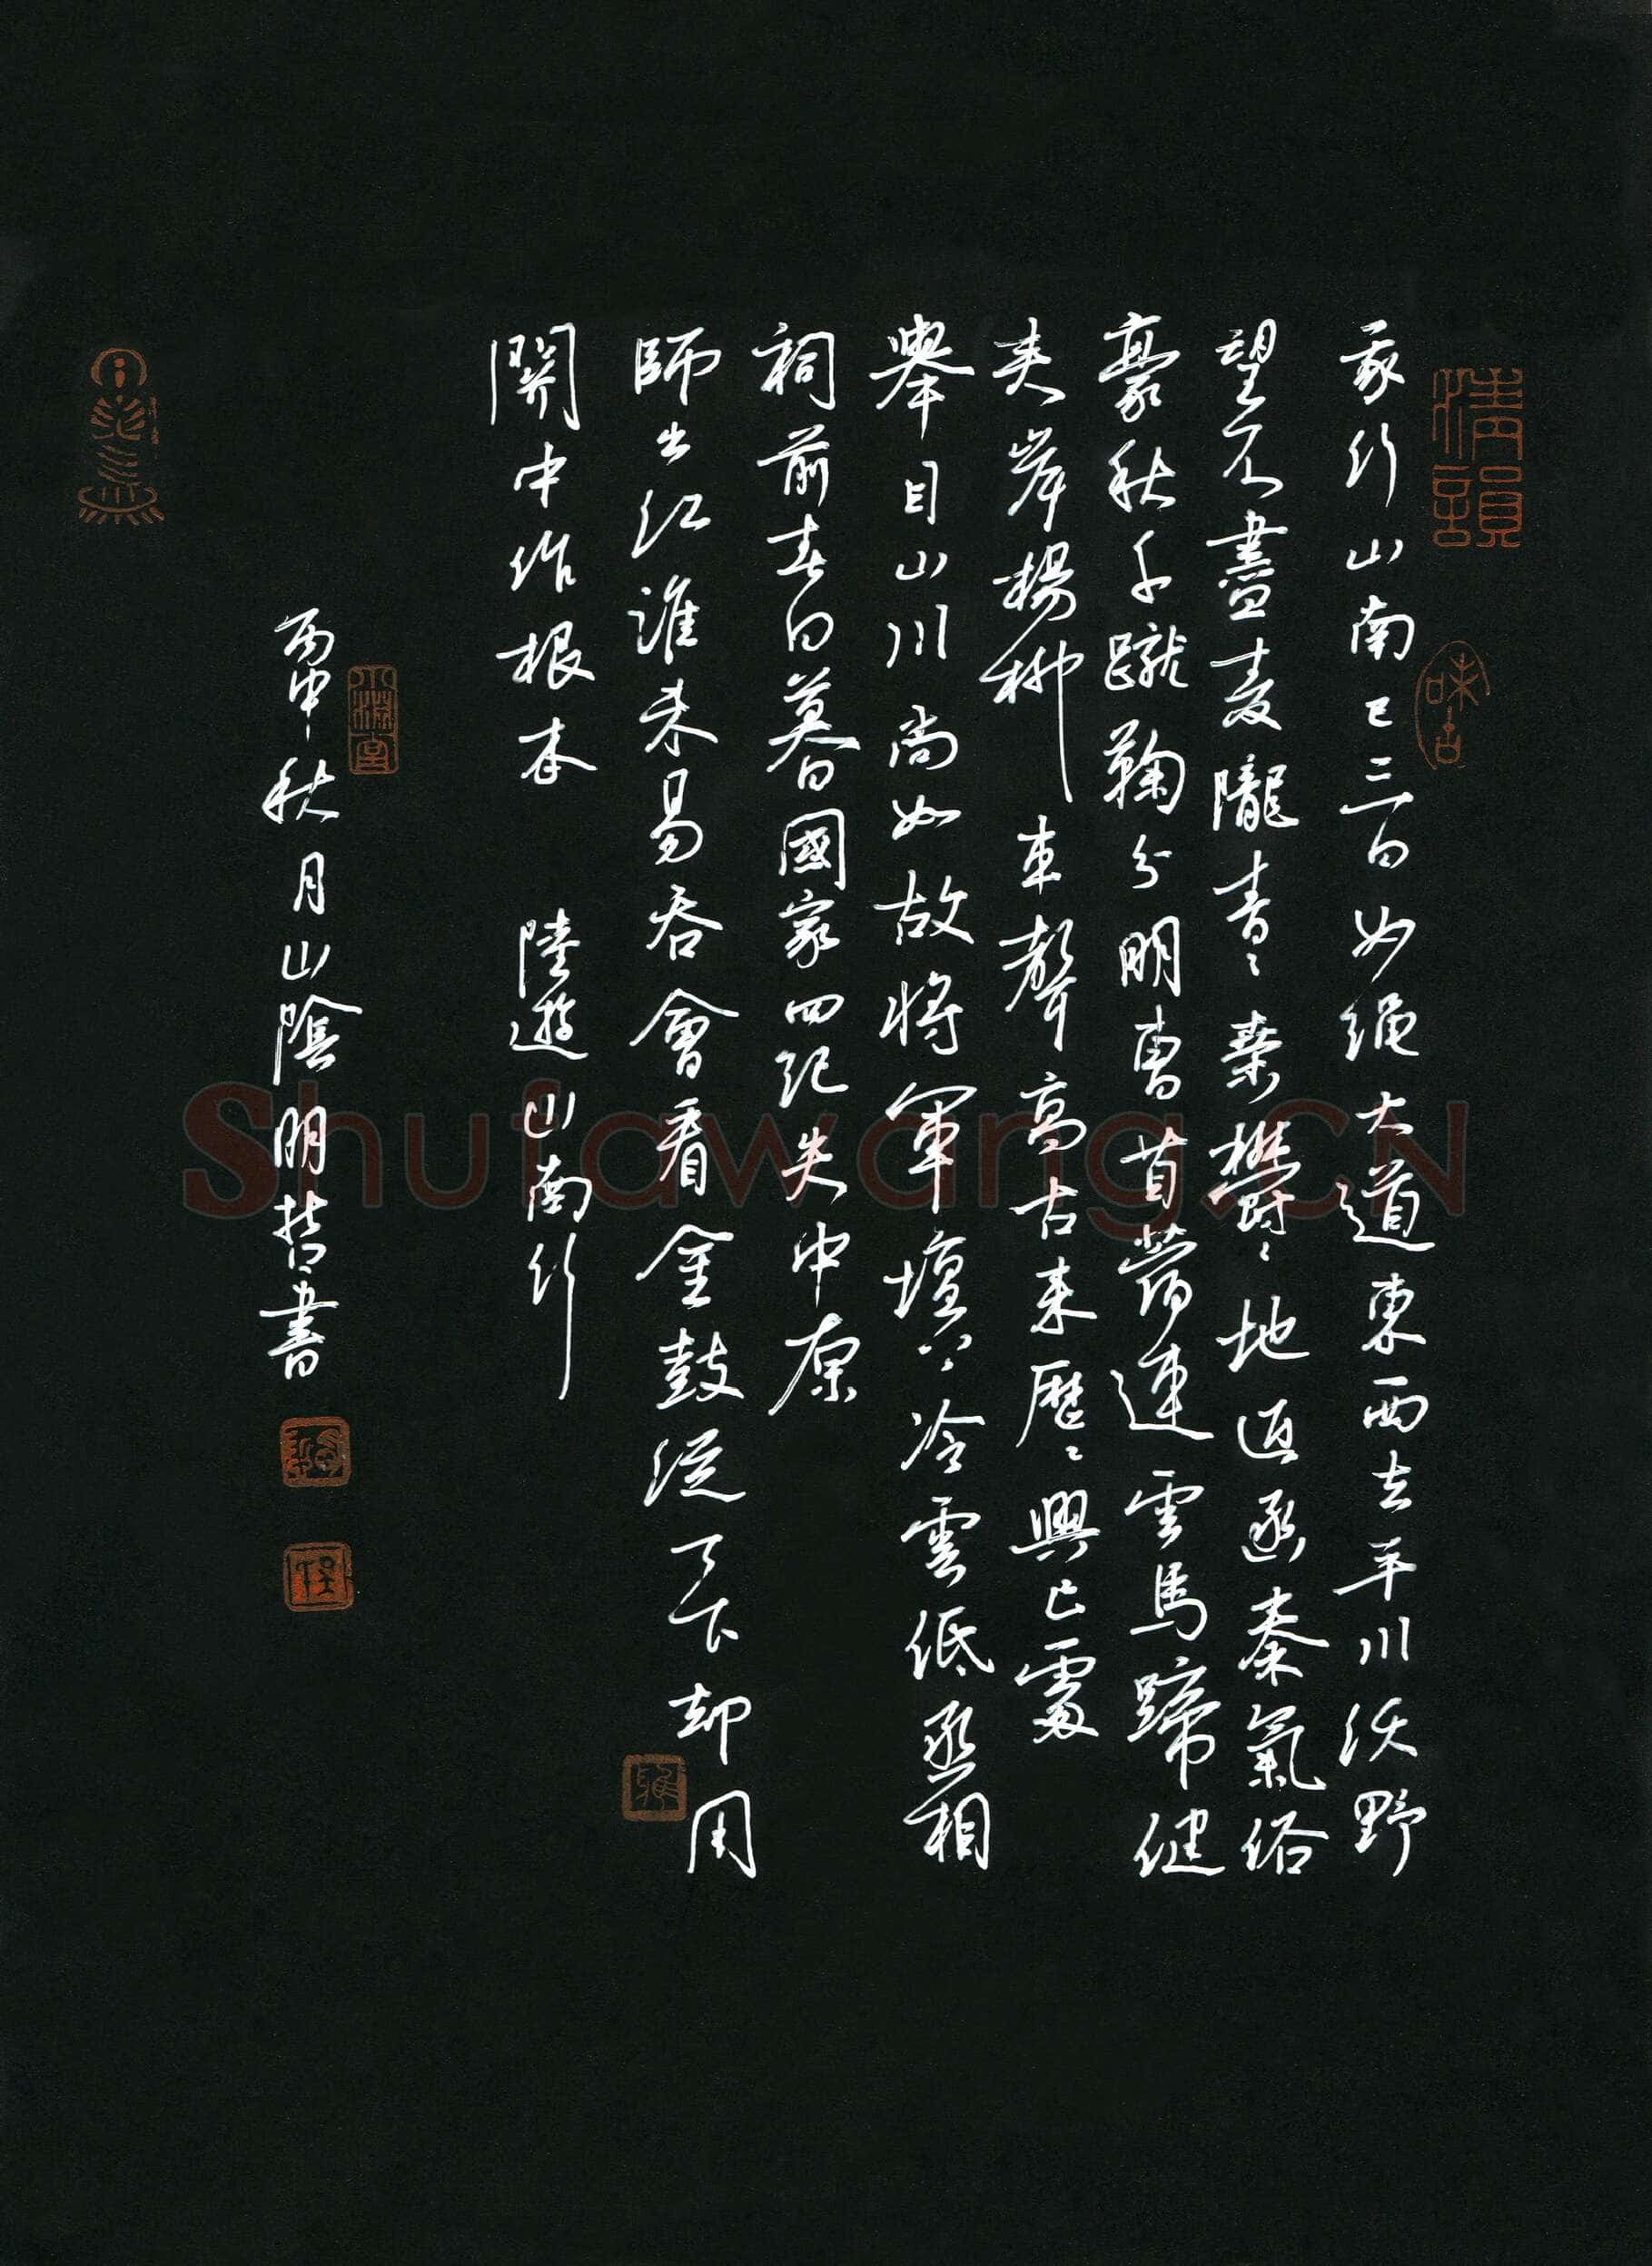 清韻
味古
我行山南已三日如绳大道東西去平川沃野
望不盡麦隴青〻桑鬱〻地近函秦氣俗
豪秋千蹴鞠分明曹苜蓿連雲馬蹄健
夹岸楊柳車聲高古来歷〻興亡處
舉目山川尚如故将軍壇上冷雲低丞相
祠前春日暮國家四纪失中原
師出江淮未易吞會看金鼓從天下却用
關中作根本 陸遊山南行
丙申秋月山陰明哲書
Shufawang.CN